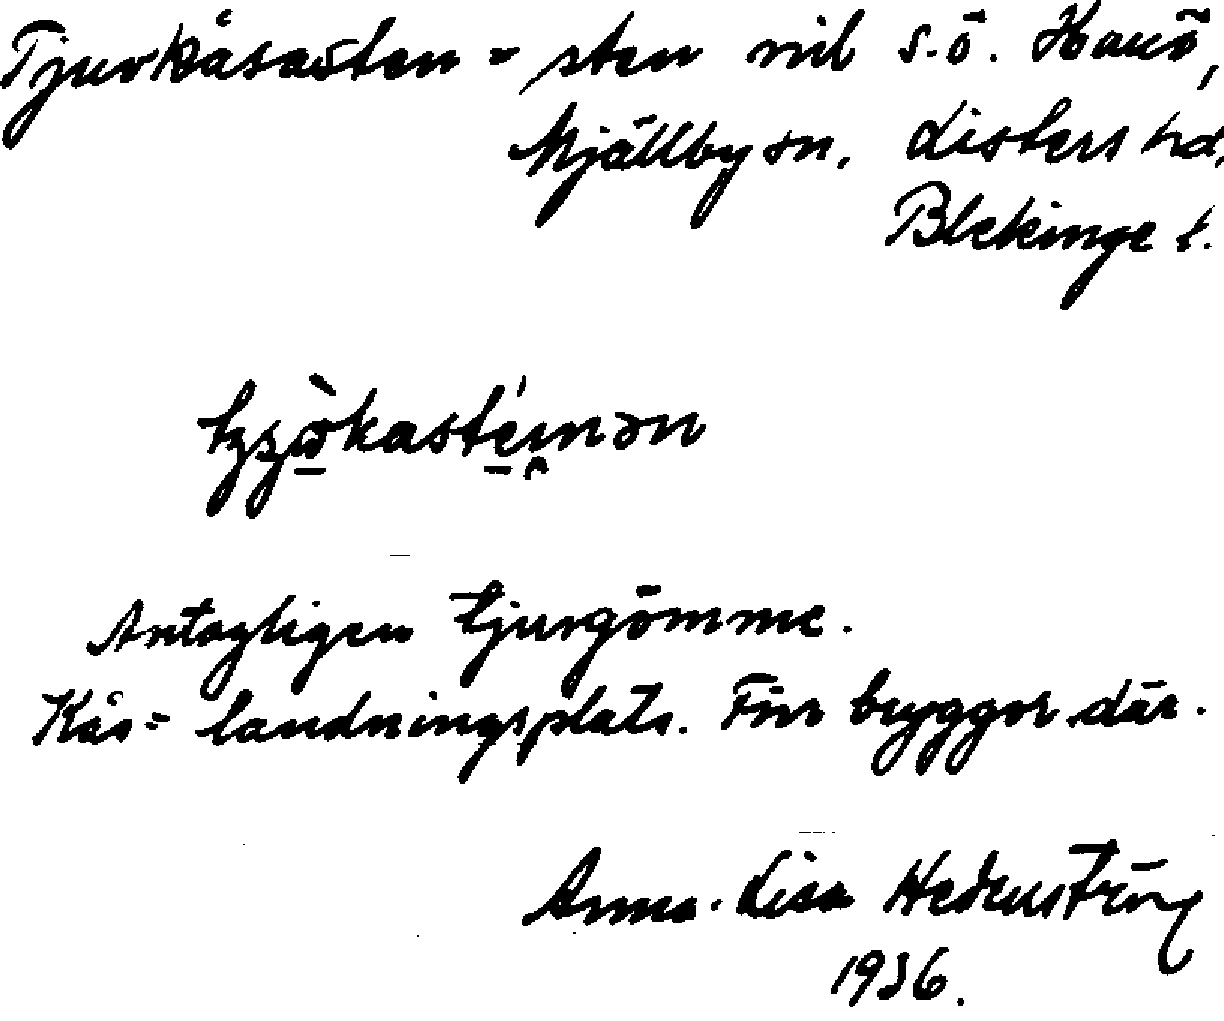 Tjurkåsasten = sten vid s.ö. Hanö,
Mjällby sn. Listers hd,
Blekinge l.
Antagligen tjurgömme.
Kås = landningsplats. Finns bryggor där.
Anna-Lisa Hedenström
1936.